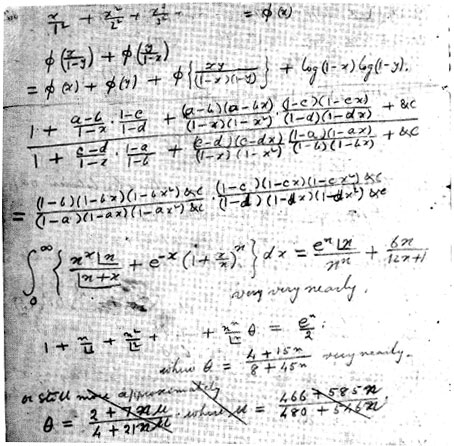 x/1² + x²/2² + x³/3² · = φ(x)
φ(x/(1-y)) + φ(y/(1-x))
= φ(x) + φ(y) + φ{xy/((1-x)(1-y))} + log(1-x) log(1-y).
1 + (a-b)/(1-x) · (1-c)/(1-d) + (a-b)(a-bx)/((1-x)(1-x²)) · (1-c)(1-cx)/((1-d)(1-dx)) + &c
1 + (c-d)/(1-x) · (1-a)/(1-b) + (c-d)(c-dx)/((1-x)(1-x²)) · (1-a)(1-ax)/((1-b)(1-bx)) + &c
= (1-b)(1-bx)(1-bx²) &c/((1-a)(1-ax)(1-ax²) &c) · (1-c)(1-cx)(1-cx²) &c/((1-d)(1-dx)(1-dx²) &c)
∫₀^∞ {nˣ|n/|n+x + e^-x (1 + x/n)ⁿ} dx = eⁿ|n/nⁿ + 6n/(12n+1)
very very nearly.
1 + n/|1 + n²/|2 + · · + nⁿ/|n θ = eⁿ/2 :
where θ = (4 + 15n)/(8 + 45n) very nearly.
or still more approximately
θ = (2 + 7nμ)/(4 + 21nμ) · where μ = (466 + 585n)/(480 + 546n)